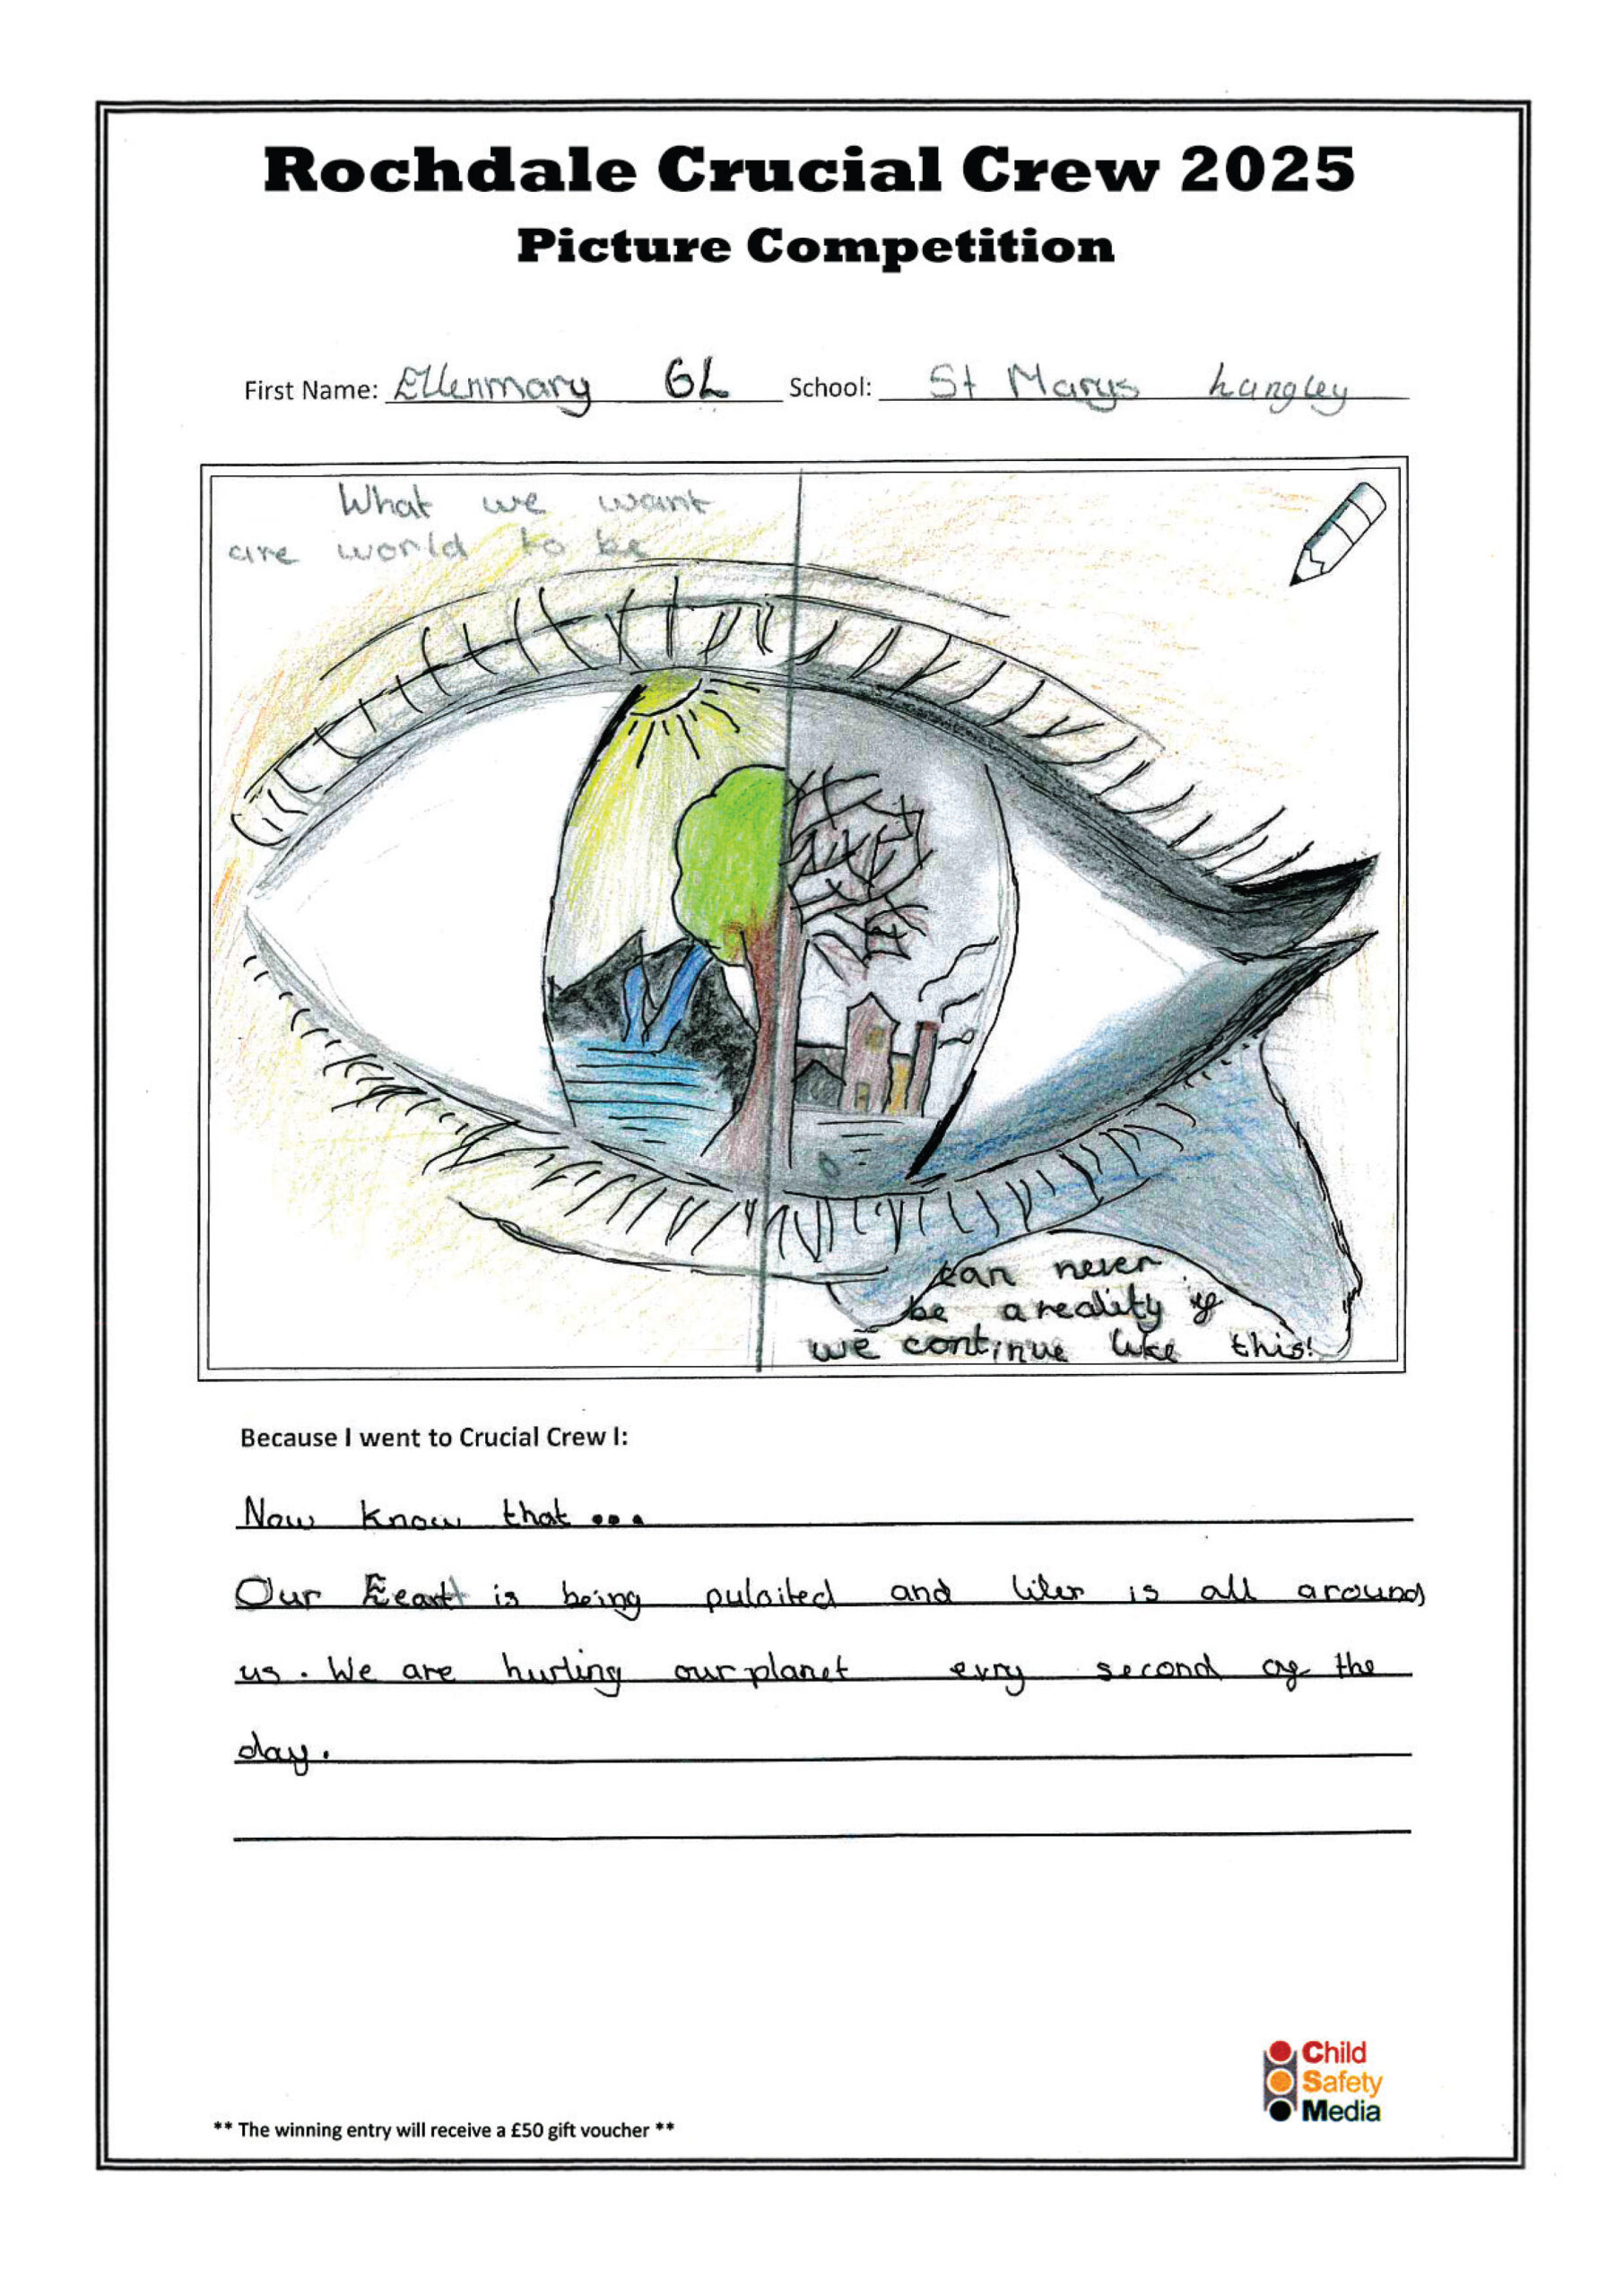 Rochdale Crucial Crew 2025
Picture Competition
First Name: Ellenmary 6L School: St Marys Langley
What we want
are world to be
can never
be a reality if
we continue like this!
Because I went to Crucial Crew I:
Now know that...
Our Eearth is being puloited and liter is all around
us. We are hurting our planet evry second of the
day.
Child
Safety
Media
** The winning entry will receive a £50 gift voucher **